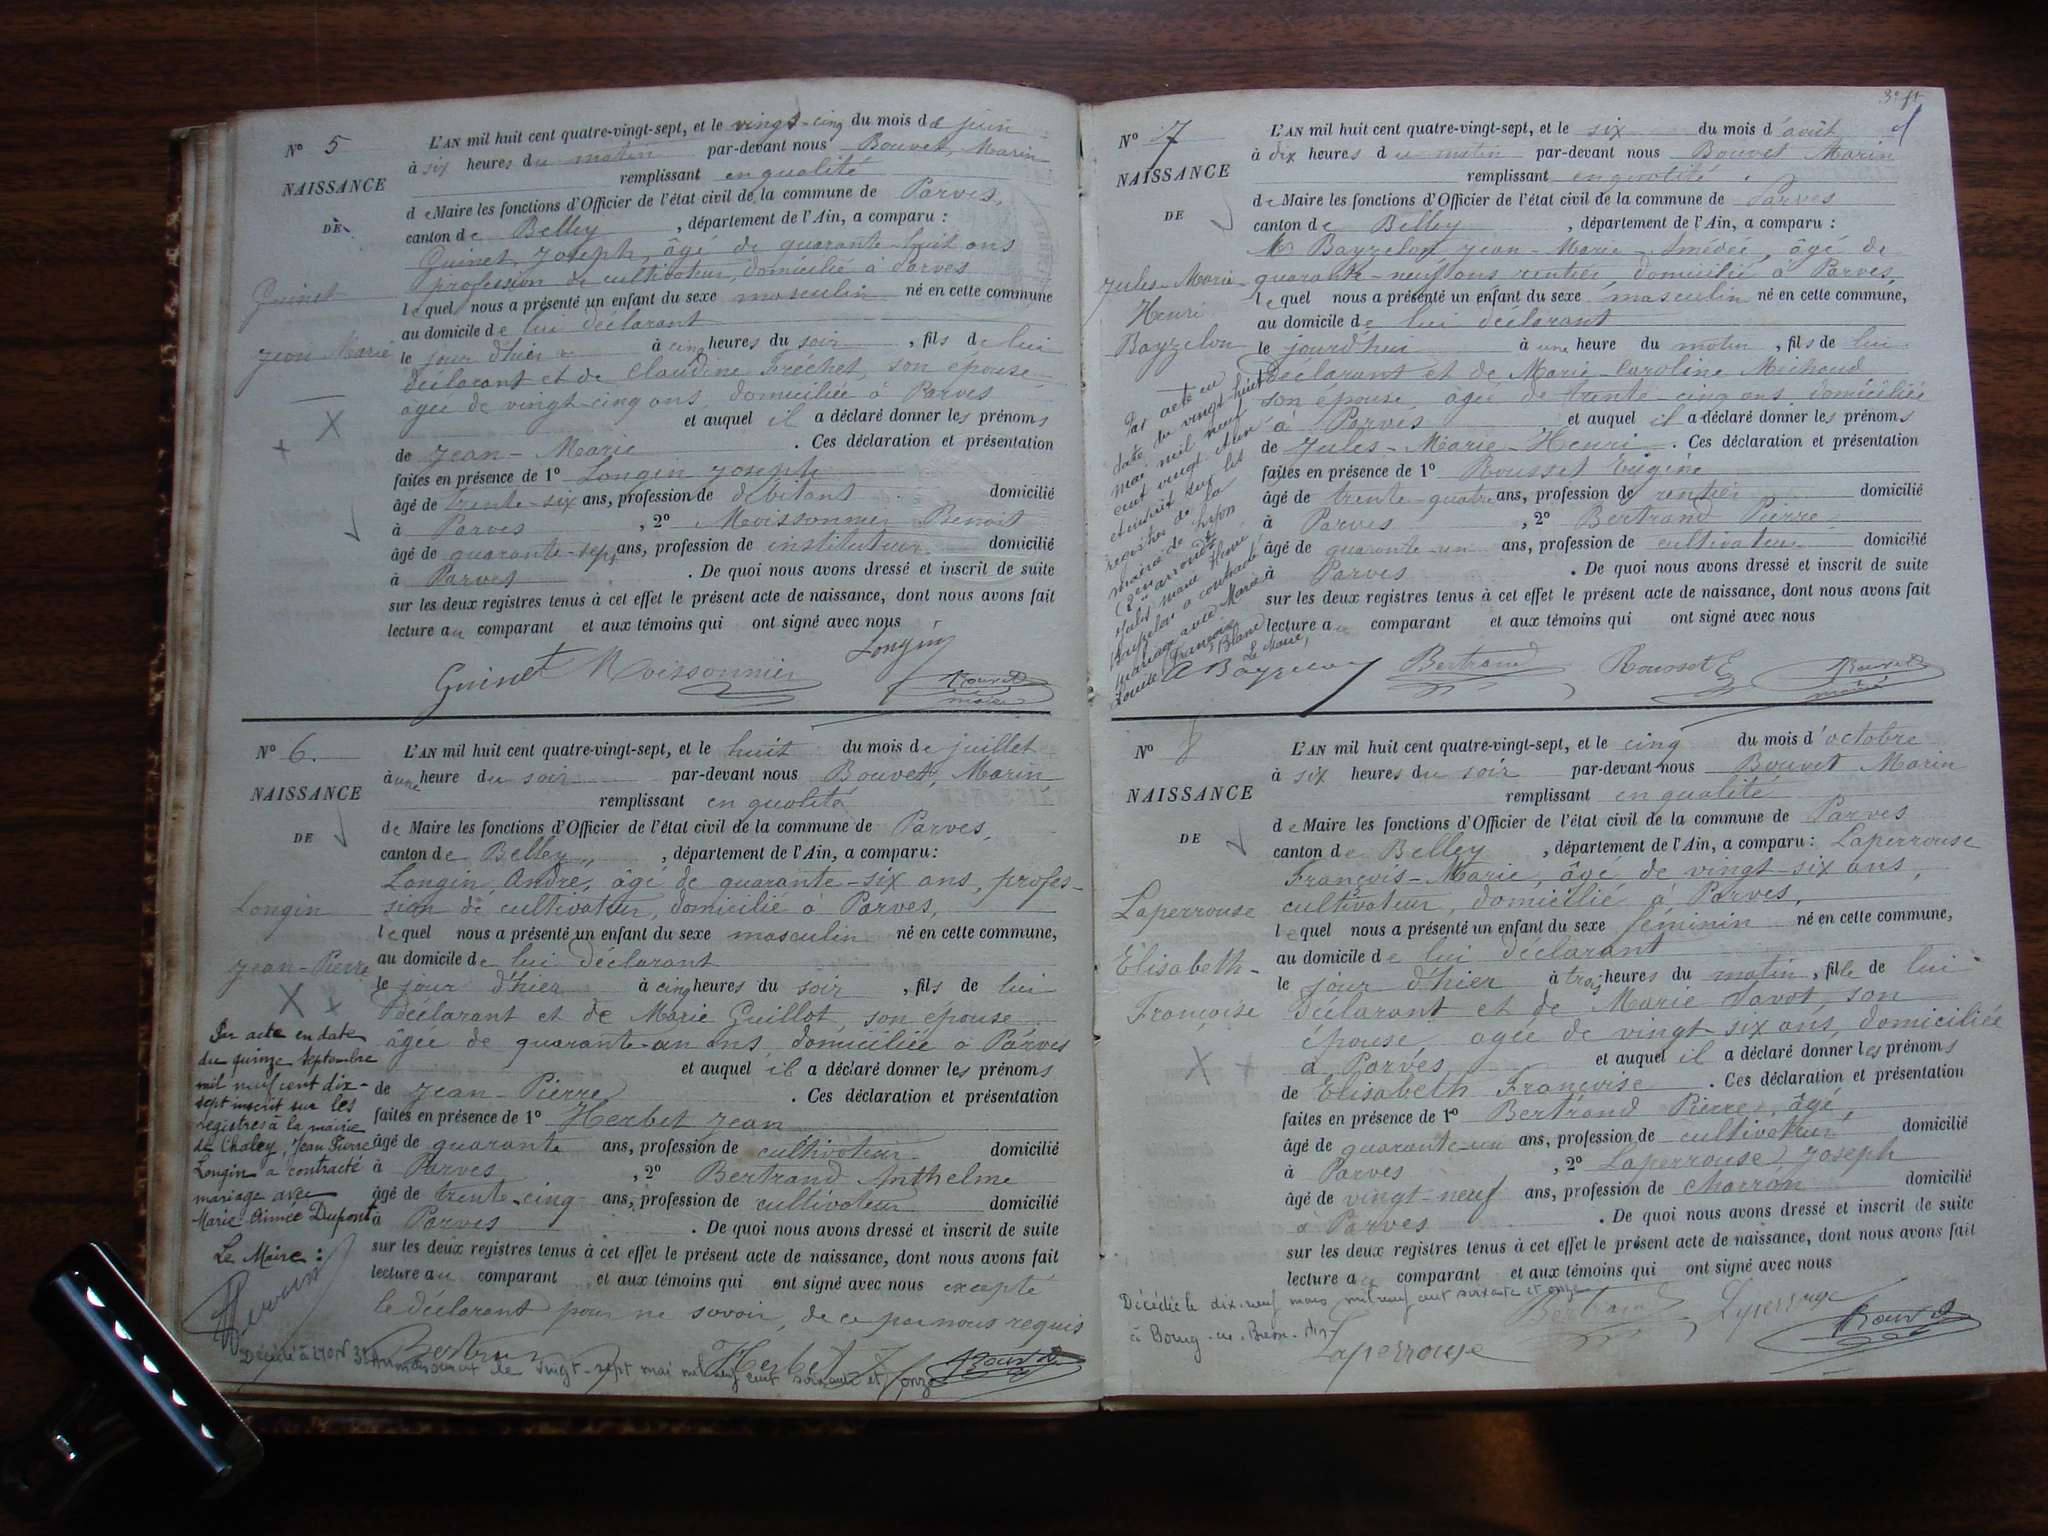 Nº 5
NAISSANCE
DE
Guinet
Jean Marie
L'AN mil huit cent quatre-vingt-sept, et le vingt-cinq du mois de juin
à six heures du matin par-devant nous Bouvet, Marin
remplissant en qualité
de Maire les fonctions d'Officier de l'état civil de la commune de Parves,
canton de Belley , département de l'Ain, a comparu :
Guinet, Joseph, âgé de quarante-huit ans
profession de cultivateur, domicilié à Parves
lequel nous a présenté un enfant du sexe masculin né en cette commune
au domicile de lui déclarant
le jour d'hier à cinq heures du soir , fils de lui
déclarant et de Claudine Fréchet, son épouse
âgée de vingt-cinq ans, domiciliée à Parves
et auquel il a déclaré donner les prénoms
de Jean-Marie . Ces déclaration et présentation
faites en présence de 1º Longin Joseph
âgé de trente-six ans, profession de débitant domicilié
à Parves , 2º Moissonnier Benoit
âgé de quarante-sept ans, profession de instituteur domicilié
à Parves . De quoi nous avons dressé et inscrit de suite
sur les deux registres tenus à cet effet le présent acte de naissance, dont nous avons fait
lecture au comparant et aux témoins qui ont signé avec nous
Longin
Guinet Moissonnier Bouvet
maire
Nº 6.
NAISSANCE
DE
Longin
Jean-Pierre
L'AN mil huit cent quatre-vingt-sept, et le huit du mois de juillet
à une heure du soir par-devant nous Bouvet, Marin
remplissant en qualité
de Maire les fonctions d'Officier de l'état civil de la commune de Parves,
canton de Belley, , département de l'Ain, a comparu :
Longin, André, âgé de quarante-six ans, profes-
sion de cultivateur, domicilié à Parves,
lequel nous a présenté un enfant du sexe masculin né en cette commune,
au domicile de lui déclarant
le jour d'hier à cinq heures du soir , fils de lui
déclarant et de Marie Guillot, son épouse
âgée de quarante-un ans, domiciliée à Parves
et auquel il a déclaré donner les prénoms
de Jean-Pierre . Ces déclaration et présentation
faites en présence de 1º Herbet Jean
âgé de quarante ans, profession de cultivateur domicilié
à Parves , 2º Bertrand Anthelme
âgé de trente-cinq ans, profession de cultivateur domicilié
à Parves . De quoi nous avons dressé et inscrit de suite
sur les deux registres tenus à cet effet le présent acte de naissance, dont nous avons fait
lecture au comparant et aux témoins qui ont signé avec nous excepté
le déclarant pour ne savoir, de ce par nous requis
Par acte en date
du quinze septembre
mil neuf cent dix-
sept inscrit sur les
registres à la mairie
de Chaley, Jean Pierre
Longin a contracté
mariage avec
Marie Aimée Dupont
Le Maire :
Bertrand Herbet J Bouvet
Décédé à Lyon 3e Arrondissement le vingt-sept mai mil neuf cent soixante et onze
3e ft
Nº 7
NAISSANCE
DE
Jules-Marie-
Henri
Bayzelon
L'AN mil huit cent quatre-vingt-sept, et le six du mois d'août
à dix heures du matin par-devant nous Bouvet Marin
remplissant en qualité
de Maire les fonctions d'Officier de l'état civil de la commune de Parves
canton de Belley , département de l'Ain, a comparu :
Mr Bayzelon Jean-Marie-Amédée, âgé de
quarante-neuf ans rentier domicilié à Parves
lequel nous a présenté un enfant du sexe masculin né en cette commune,
au domicile de lui déclarant
le jourd'hui à une heure du matin , fils de lui
déclarant et de Marie Caroline Michaud
son épouse, âgée de trente-cinq ans domiciliée
à Parves et auquel il a déclaré donner les prénoms
de Jules-Marie-Henri . Ces déclaration et présentation
faites en présence de 1º Rousset Eugène
âgé de trente-quatre ans, profession de rentier domicilié
à Parves , 2º Bertrand Pierre
âgé de quarante-un ans, profession de cultivateur domicilié
à Parves . De quoi nous avons dressé et inscrit de suite
sur les deux registres tenus à cet effet le présent acte de naissance, dont nous avons fait
lecture au comparant et aux témoins qui ont signé avec nous
Par acte en
date du vingt huit
mai mil neuf
cent vingt et un
et inscrit sur les
registres de la
mairie de Lyon
(2e arrondt
Jules Marie Henri
Bayzelon a contracté
mariage avec Marie
Françoise Blanc
Louise
Le Maire,
A Bayzelon Bertrand Rousset E Bouvet
maire
Nº 8
NAISSANCE
DE
Laperrouse
Elisabeth-
Françoise
L'AN mil huit cent quatre-vingt-sept, et le cinq du mois d'octobre
à six heures du soir par-devant nous Bouvet Marin
remplissant en qualité
de Maire les fonctions d'Officier de l'état civil de la commune de Parves
canton de Belley , département de l'Ain, a comparu : Laperrouse
François-Marie, âgé de vingt-six ans,
cultivateur, domicilié à Parves,
lequel nous a présenté un enfant du sexe féminin né en cette commune,
au domicile de lui déclarant
le jour d'hier à trois heures du matin , fille de lui
déclarant et de Marie Savot, son
épouse agée de vingt-six ans, domiciliée
à Parves et auquel il a déclaré donner les prénoms
de Elisabeth Françoise . Ces déclaration et présentation
faites en présence de 1º Bertrand Pierre, âgé,
âgé de quarante-un ans, profession de cultivateur domicilié
à Parves , 2º Laperrouse Joseph
âgé de vingt-neuf ans, profession de charron domicilié
à Parves . De quoi nous avons dressé et inscrit de suite
sur les deux registres tenus à cet effet le présent acte de naissance, dont nous avons fait
lecture au comparant et aux témoins qui ont signé avec nous
Décédée le dix-neuf mars mil neuf cent soixante et onze
à Bourg-en-Bresse-Ain
Bertrand Laperrouse Bouvet
Laperrouse